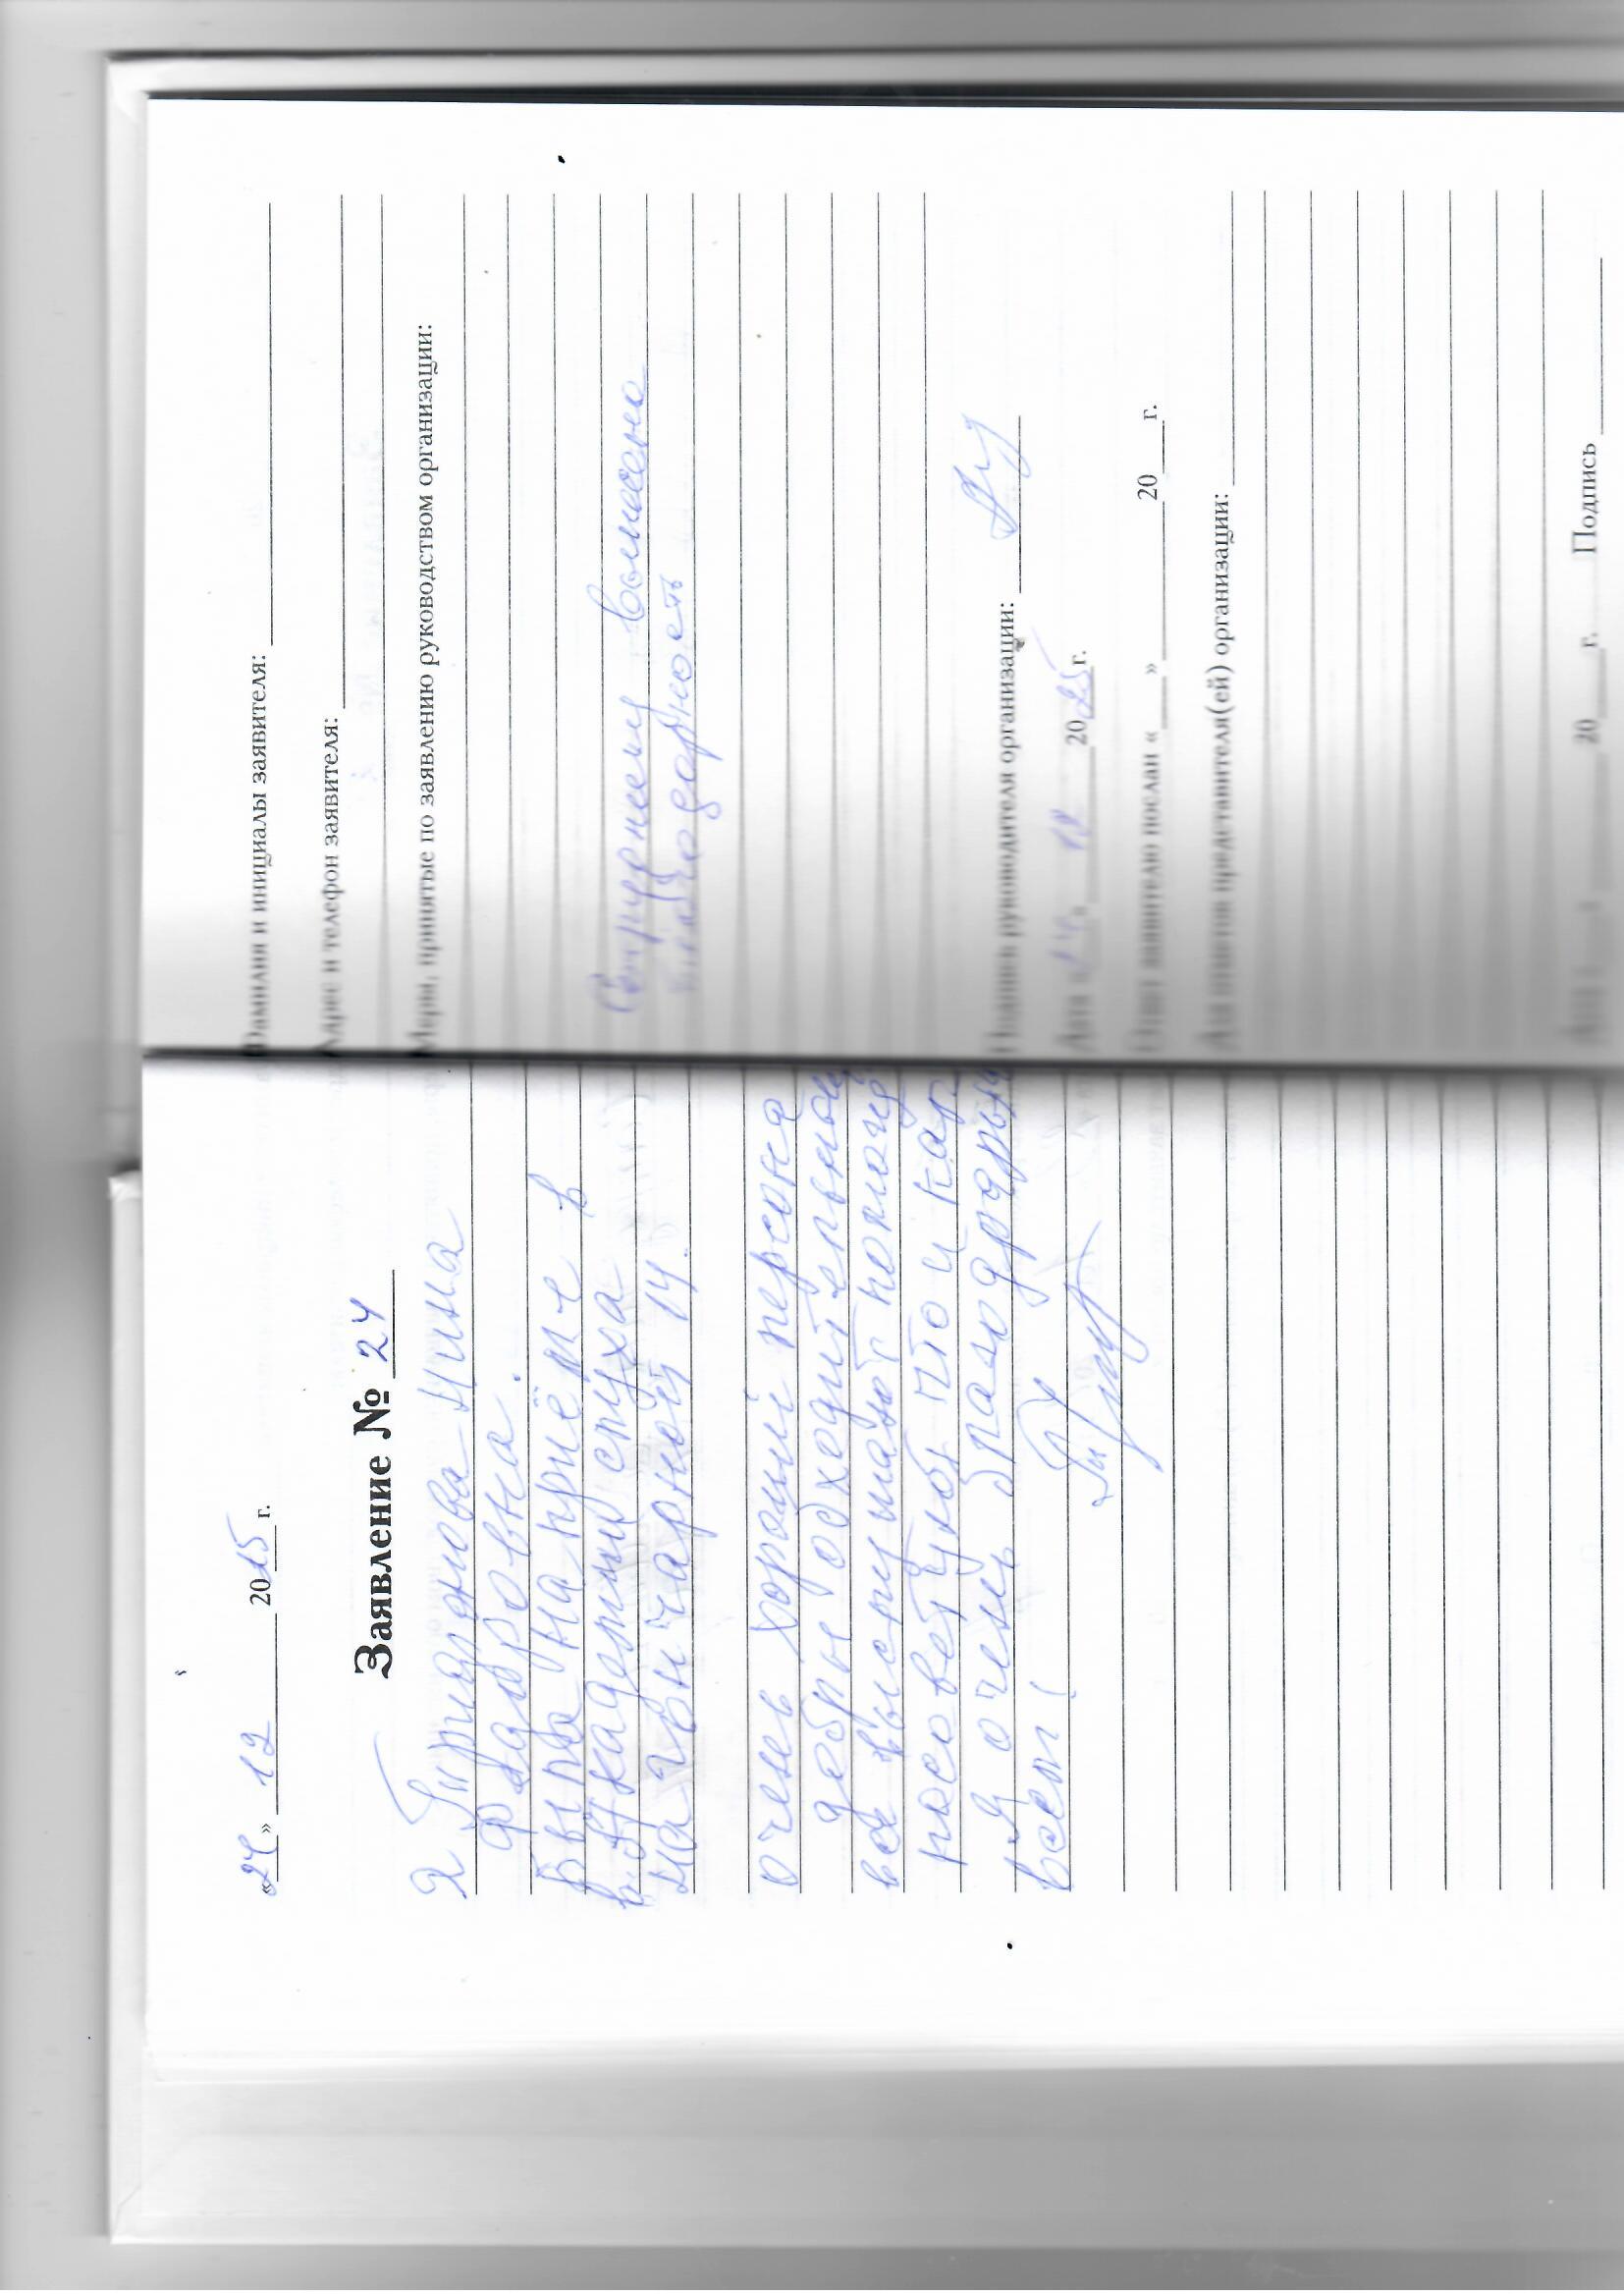 «24» 12 2025 г.
Заявление № 24
Нина
Фёдоровна.
Была на приёме в
в Академии слуха
на Гончарной 14.
очень хороший персонал
добрые
все выслушают помогут
посоветуют что и как.
Я очень благодарна
всем!
Фамилия и инициалы заявителя:
Адрес и телефон заявителя:
Меры, принятые по заявлению руководством организации:
Сотруднику вынесена
благодарность
Подпись руководителя организации:
Дата «24» 12 2025 г.
Ответ заявителю послан « » 20 г.
Для ответов представителя(ей) организации:
Дата « » 20 г. Подпись